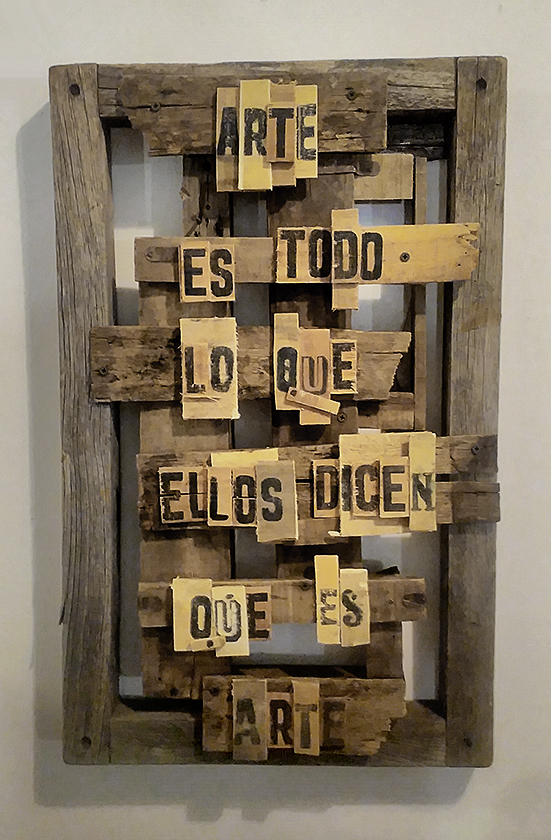 ARTE
ES TODO
LO QUE
ELLOS DICEN
QUE ES
ARTE